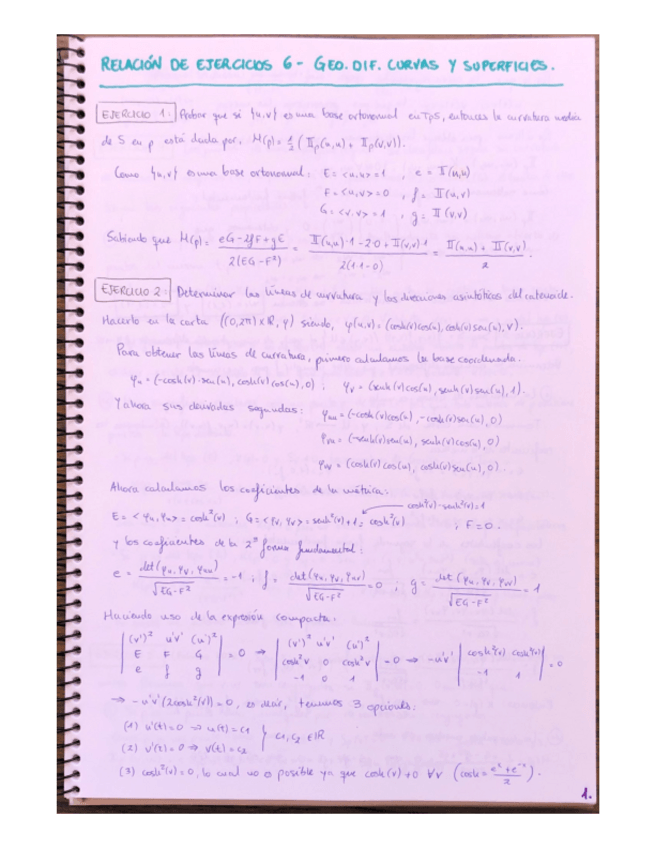 RELACIÓN DE EJERCICIOS 6 - GEO. DIF. CURVAS Y SUPERFICIES.
EJERCICIO 1: Probar que si {u,v} es una base ortonormal en TpS, entonces la curvatura media
de S en p está dada por: H(p) = 1/2 (IIp(u,u) + IIp(v,v)).
Como {u,v} es una base ortonormal: E = <u,u> = 1 , e = II(u,u)
F = <u,v> = 0 , f = II(u,v)
G = <v,v> = 1 , g = II(v,v)
Sabiendo que H(p) = (eG - 2fF + gE)/(2(EG - F²)) = (II(u,u)·1 - 2·0 + II(v,v)·1)/(2(1·1 - 0)) = (II(u,u) + II(v,v))/2 .
EJERCICIO 2: Determinar las líneas de curvatura y las direcciones asintóticas del catenoide.
Hacerlo en la carta ((0,2π)×ℝ, φ) siendo, φ(u,v) = (cosh(v)cos(u), cosh(v)sen(u), v).
Para obtener las líneas de curvatura, primero calculamos la base coordenada.
φu = (-cosh(v)·sen(u), cosh(v)cos(u), 0) ; φv = (senh(v)cos(u), senh(v)sen(u), 1).
Y ahora sus derivadas segundas: φuu = (-cosh(v)cos(u), -cosh(v)sen(u), 0)
φuv = (-senh(v)sen(u), senh(v)cos(u), 0)
φvv = (cosh(v)cos(u), cosh(v)sen(u), 0).
Ahora calculamos los coeficientes de la métrica:
cosh²(v) - senh²(v) = 1
E = <φu, φu> = cosh²(v) ; G = <φv, φv> = senh²(v) + 1 = cosh²(v) , F = 0.
y los coeficientes de la 2ª forma fundamental:
e = det(φu, φv, φuu)/√(EG-F²) = -1 ; f = det(φu, φv, φuv)/√(EG-F²) = 0 ; g = det(φu, φv, φvv)/√(EG-F²) = 1
Haciendo uso de la expresión compacta:
|(v')² u'v' (u')²| |(v')² u'v' (u')²|
|E F G| = 0 ⇒ |cosh²v 0 cosh²v| = 0 ⇒ -u'v' |cosh²(v) cosh²(v)| = 0
|e f g| |-1 0 1| |-1 1|
⇒ -u'v'(2cosh²(v)) = 0, es decir, tenemos 3 opciones:
(1) u'(t) = 0 ⇒ u(t) = c1 } c1, c2 ∈ ℝ
(2) v'(t) = 0 ⇒ v(t) = c2
(3) cosh²(v) = 0, lo cual no es posible ya que cosh(v) ≠ 0 ∀v (cosh = (e^x + e^-x)/2).
1.